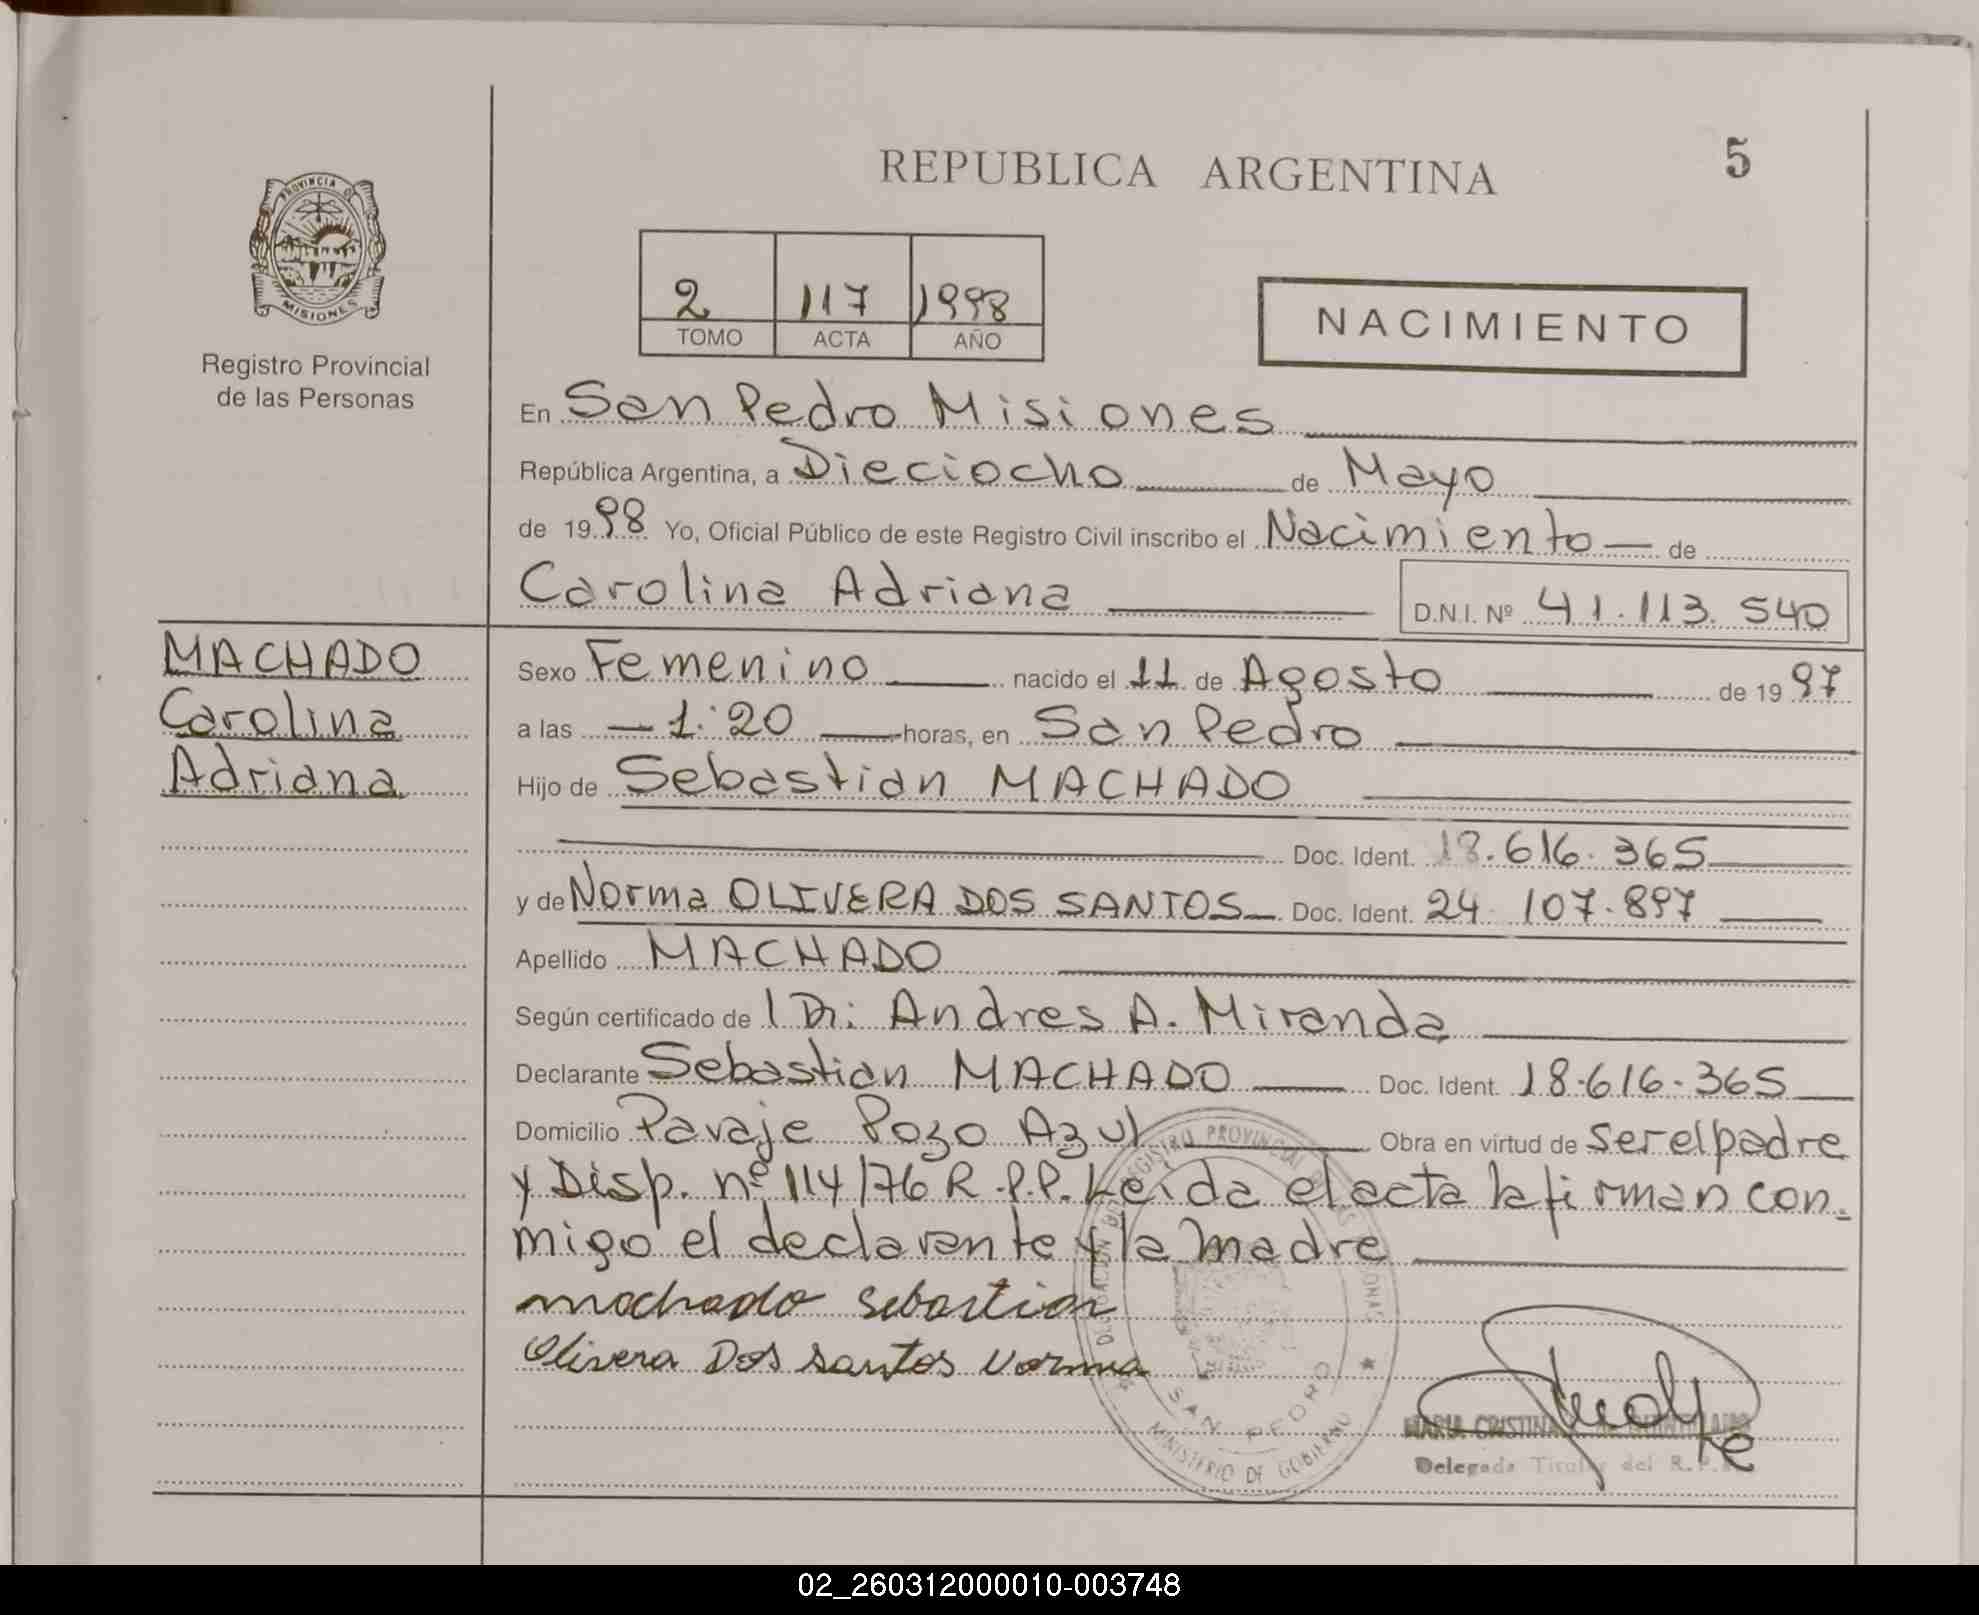 REPUBLICA ARGENTINA
5
PROVINCIA DE
MISIONES
Registro Provincial
de las Personas
2 117 1998
TOMO ACTA AÑO
NACIMIENTO
En San Pedro Misiones
República Argentina, a Dieciocho de Mayo
de 1998 Yo, Oficial Público de este Registro Civil inscribo el Nacimiento de
Carolina Adriana D.N.I. Nº 41.113.540
MACHADO
Carolina
Adriana
Sexo Femenino nacido el 11 de Agosto de 1997
a las 1:20 horas, en San Pedro
Hijo de Sebastian MACHADO
Doc. Ident. 18.616.365
y de Norma OLIVERA DOS SANTOS Doc. Ident. 24.107.897
Apellido MACHADO
Según certificado de l Dr: Andres A. Miranda
Declarante Sebastian MACHADO Doc. Ident. 18.616.365
Domicilio Paraje Pozo Azul Obra en virtud de ser el padre
y Disp. nº 114/76 R.P.P. Leida el acta la firman con-
migo el declarante y la madre
machado sebastian
Olivera Dos santos Norma
DELEGACION DEL REGISTRO PROVINCIAL DE LAS PERSONAS
SAN PEDRO
MINISTERIO DE GOBIERNO
MARIA CRISTINA
Delegada Titular del R.P.
02_260312000010-003748